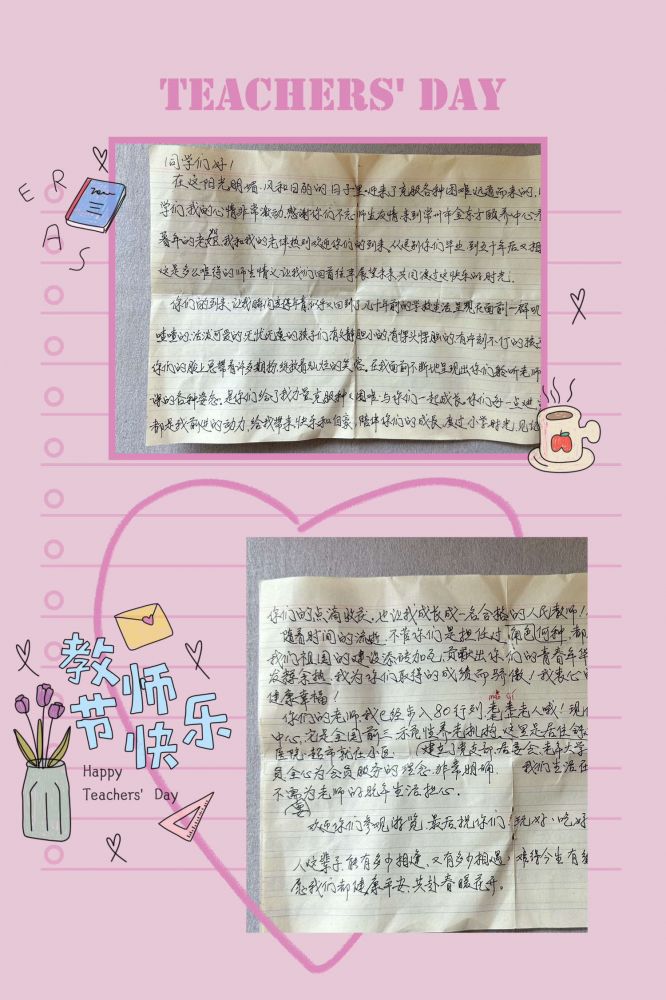 TEACHERS' DAY
ERAS
同学们好！
在这阳光明媚、风和日丽的日子里，迎来了克服各种困难远道而来的
学们，我的心情非常激动，感谢你们不忘师生友情来到常州市金东方颐养中心
暮年的老，我和我的老伴热烈欢迎你们的到来。从送别你们毕业，到五十年后又相
这是多么难得的师生情义，让我们回首往事展望未来共同度过这快乐的时光。
你们的到来，让我瞬间变得年青，似乎又回到了几十年前的学校生活，呈现在面前一群叽
喳喳的、活泼可爱的、无忧无虑的孩子们，有文静胆小的，有惺头惺脑的，有
你们的脸上总带着许多期盼，绽放着灿烂的笑容。在我面前不断地呈现出你们聆听老师
课的各种姿态。是你们给了我力量克服种种困难，与你们一起成长，你们每一点进
都是我前进的动力，给我带来快乐和自豪，陪伴你们的成长，度过小学时光，见证
你们的点滴收获，也让我成长成一名合格的人民教师！
随着时间的流逝，不管你们是担任过何种，都
我们祖国的建设添砖加瓦，贡献出你们的青春年华
发挥余热，我为你们取得的成绩而骄傲！我衷心
健康幸福！
mào dié
你们的老师，我已经步入80行列，耄耋老人哦！现
中心，它是全国前三示范性养老机构，这里是居住
医院、超市就在小区。（建立了党支部、居委会、老年大学
员全心为会员服务的理念非常明确。我们生活在
不需为老师的晚年生活担心。
欢迎你们参观游览，最后祝你们：玩好、吃好
人这辈子，能有多少相逢，又有多少相遇，难得今生有
愿我们都健康平安，共赴春暖花开。
教师
节快乐
Happy
Teachers' Day